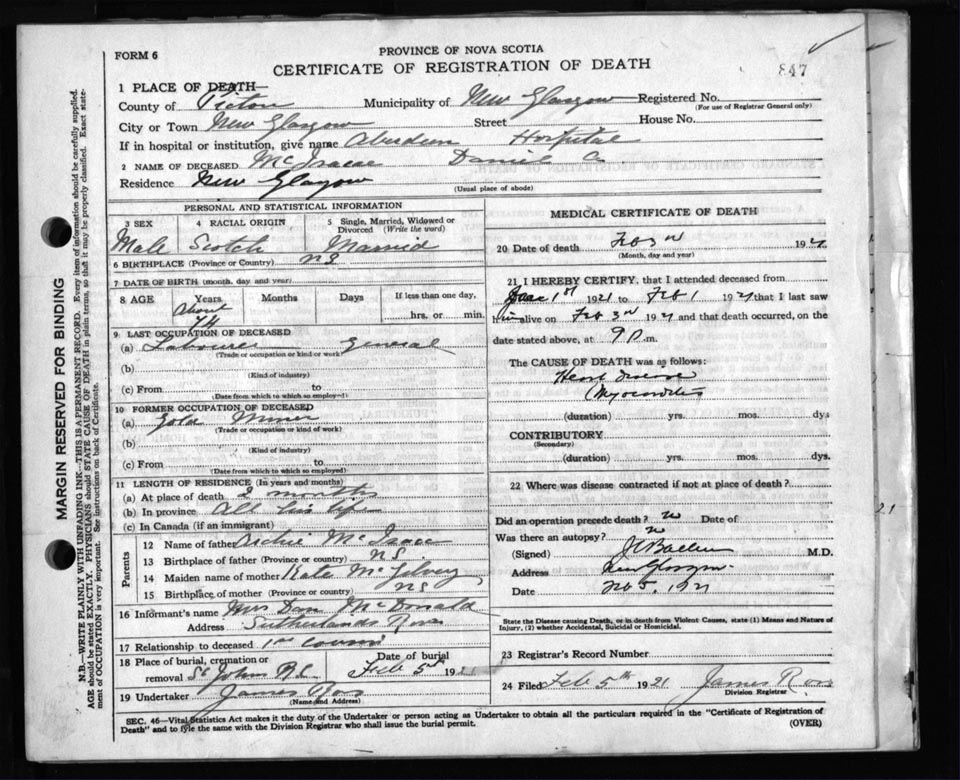 847
FORM 6
PROVINCE OF NOVA SCOTIA
CERTIFICATE OF REGISTRATION OF DEATH
1 PLACE OF DEATH—
County of Pictou Municipality of New Glasgow Registered No.
(For use of Registrar General only)
City or Town New Glasgow Street House No.
If in hospital or institution, give name Aberdeen Hospital
2 NAME OF DECEASED McIsaac Daniel C
Residence New Glasgow
(Usual place of abode)
PERSONAL AND STATISTICAL INFORMATION
3 SEX 4 RACIAL ORIGIN 5 Single, Married, Widowed or Divorced (Write the word)
Male Scotch Married
6 BIRTHPLACE (Province or Country) NS
7 DATE OF BIRTH (month, day and year)
8 AGE Years Months Days If less than one day,
About 74 hrs. or min.
9 LAST OCCUPATION OF DECEASED
(a) Labourer General
(Trade or occupation or kind of work)
(b)
(Kind of industry)
(c) From to
(Date from which to which so employed)
10 FORMER OCCUPATION OF DECEASED
(a) Gold Miner
(Trade or occupation or kind of work)
(b)
(Kind of industry)
(c) From to
(Date from which to which so employed)
11 LENGTH OF RESIDENCE (In years and months)
(a) At place of death 2 months
(b) In province All his life
(c) In Canada (if an immigrant)
Parents
12 Name of father Archie McIsaac
13 Birthplace of father (Province or country) NS
14 Maiden name of mother Kate McGilvery
15 Birthplace of mother (Province or country) NS
16 Informant's name Mrs Dan McDonald
Address Sutherlands River
17 Relationship to deceased 1st cousin
18 Place of burial, cremation or removal St Johns Date of burial Feb 5th 1921
19 Undertaker James Ross
(Name and Address)
MEDICAL CERTIFICATE OF DEATH
20 Date of death Feb 3rd 1921
(Month, day and year)
21 I HEREBY CERTIFY, that I attended deceased from
1st 1921 to Feb 1 1921 that I last saw
him alive on Feb 3rd 1921 and that death occurred, on the
date stated above, at 9 p.m.
The CAUSE OF DEATH was as follows:
Heart disease
Myocarditis
(duration) yrs. mos. dys
CONTRIBUTORY
(Secondary)
(duration) yrs. mos. dys.
22 Where was disease contracted if not at place of death?
Did an operation precede death? no Date of
Was there an autopsy? no
(Signed) M.D.
Address New Glasgow
Date Feb 5, 1921
State the Disease causing Death, or in death from Violent Causes, state (1) Means and Nature of Injury, (2) whether Accidental, Suicidal or Homicidal.
23 Registrar's Record Number
24 Filed Feb 5th 1921 James Ross
Division Registrar
SEC. 46—Vital Statistics Act makes it the duty of the Undertaker or person acting as Undertaker to obtain all the particulars required in the "Certificate of Registration of
Death" and to fyle the same with the Division Registrar who shall issue the burial permit.
(OVER)
MARGIN RESERVED FOR BINDING
N.B.—WRITE PLAINLY WITH UNFADING INK—THIS IS A PERMANENT RECORD. Every item of information should be carefully supplied.
AGE should be stated EXACTLY. PHYSICIANS should STATE CAUSE OF DEATH in plain terms, so that it may be properly classified. Exact statement of OCCUPATION is very important. See instructions on back of Certificate.